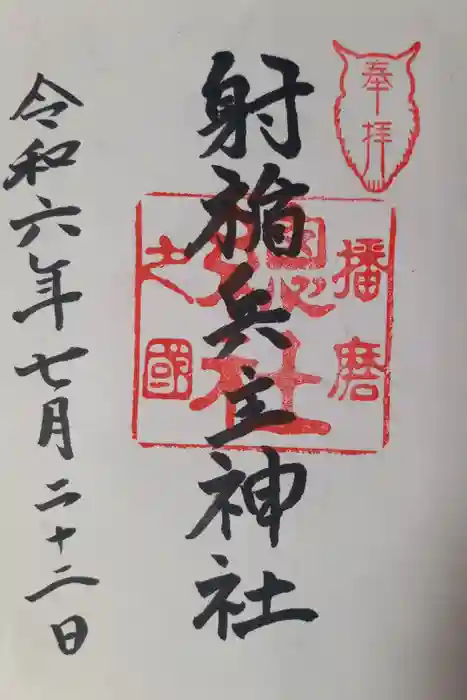 奉拝
播磨
惣社
之國
射楯兵主神社
令和六年七月二十二日